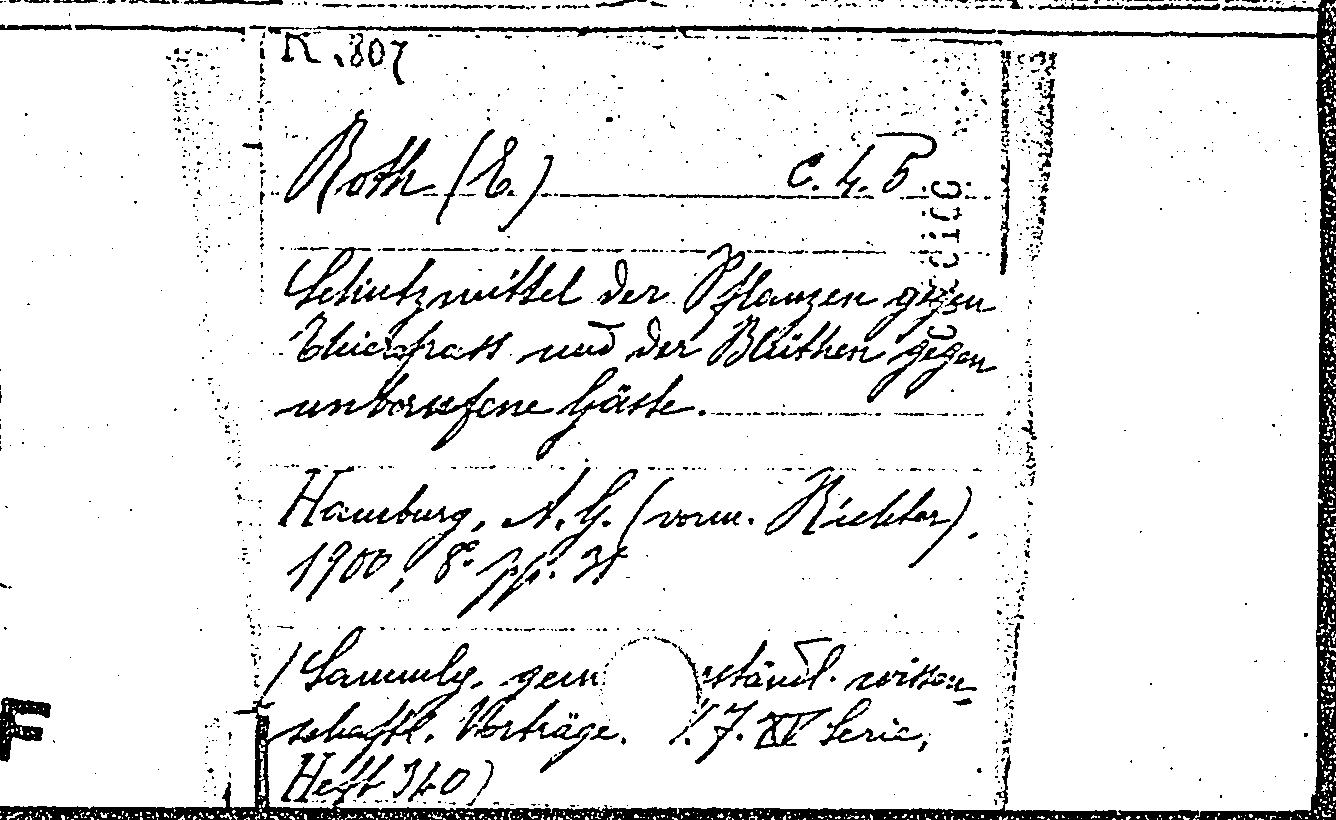 R.807
Roth (E.) C.4.5
Schutzmittel der Pflanzen gegen
Thierfrass und der Blüthen gegen
unberufene Gäste.
Hamburg, A.G. (vorm. Richter).
1900, 8° pp. 38
(Sammlg. gem ständl. wissen-
schaftl. Vorträge. XV Serie,
Heft 340)